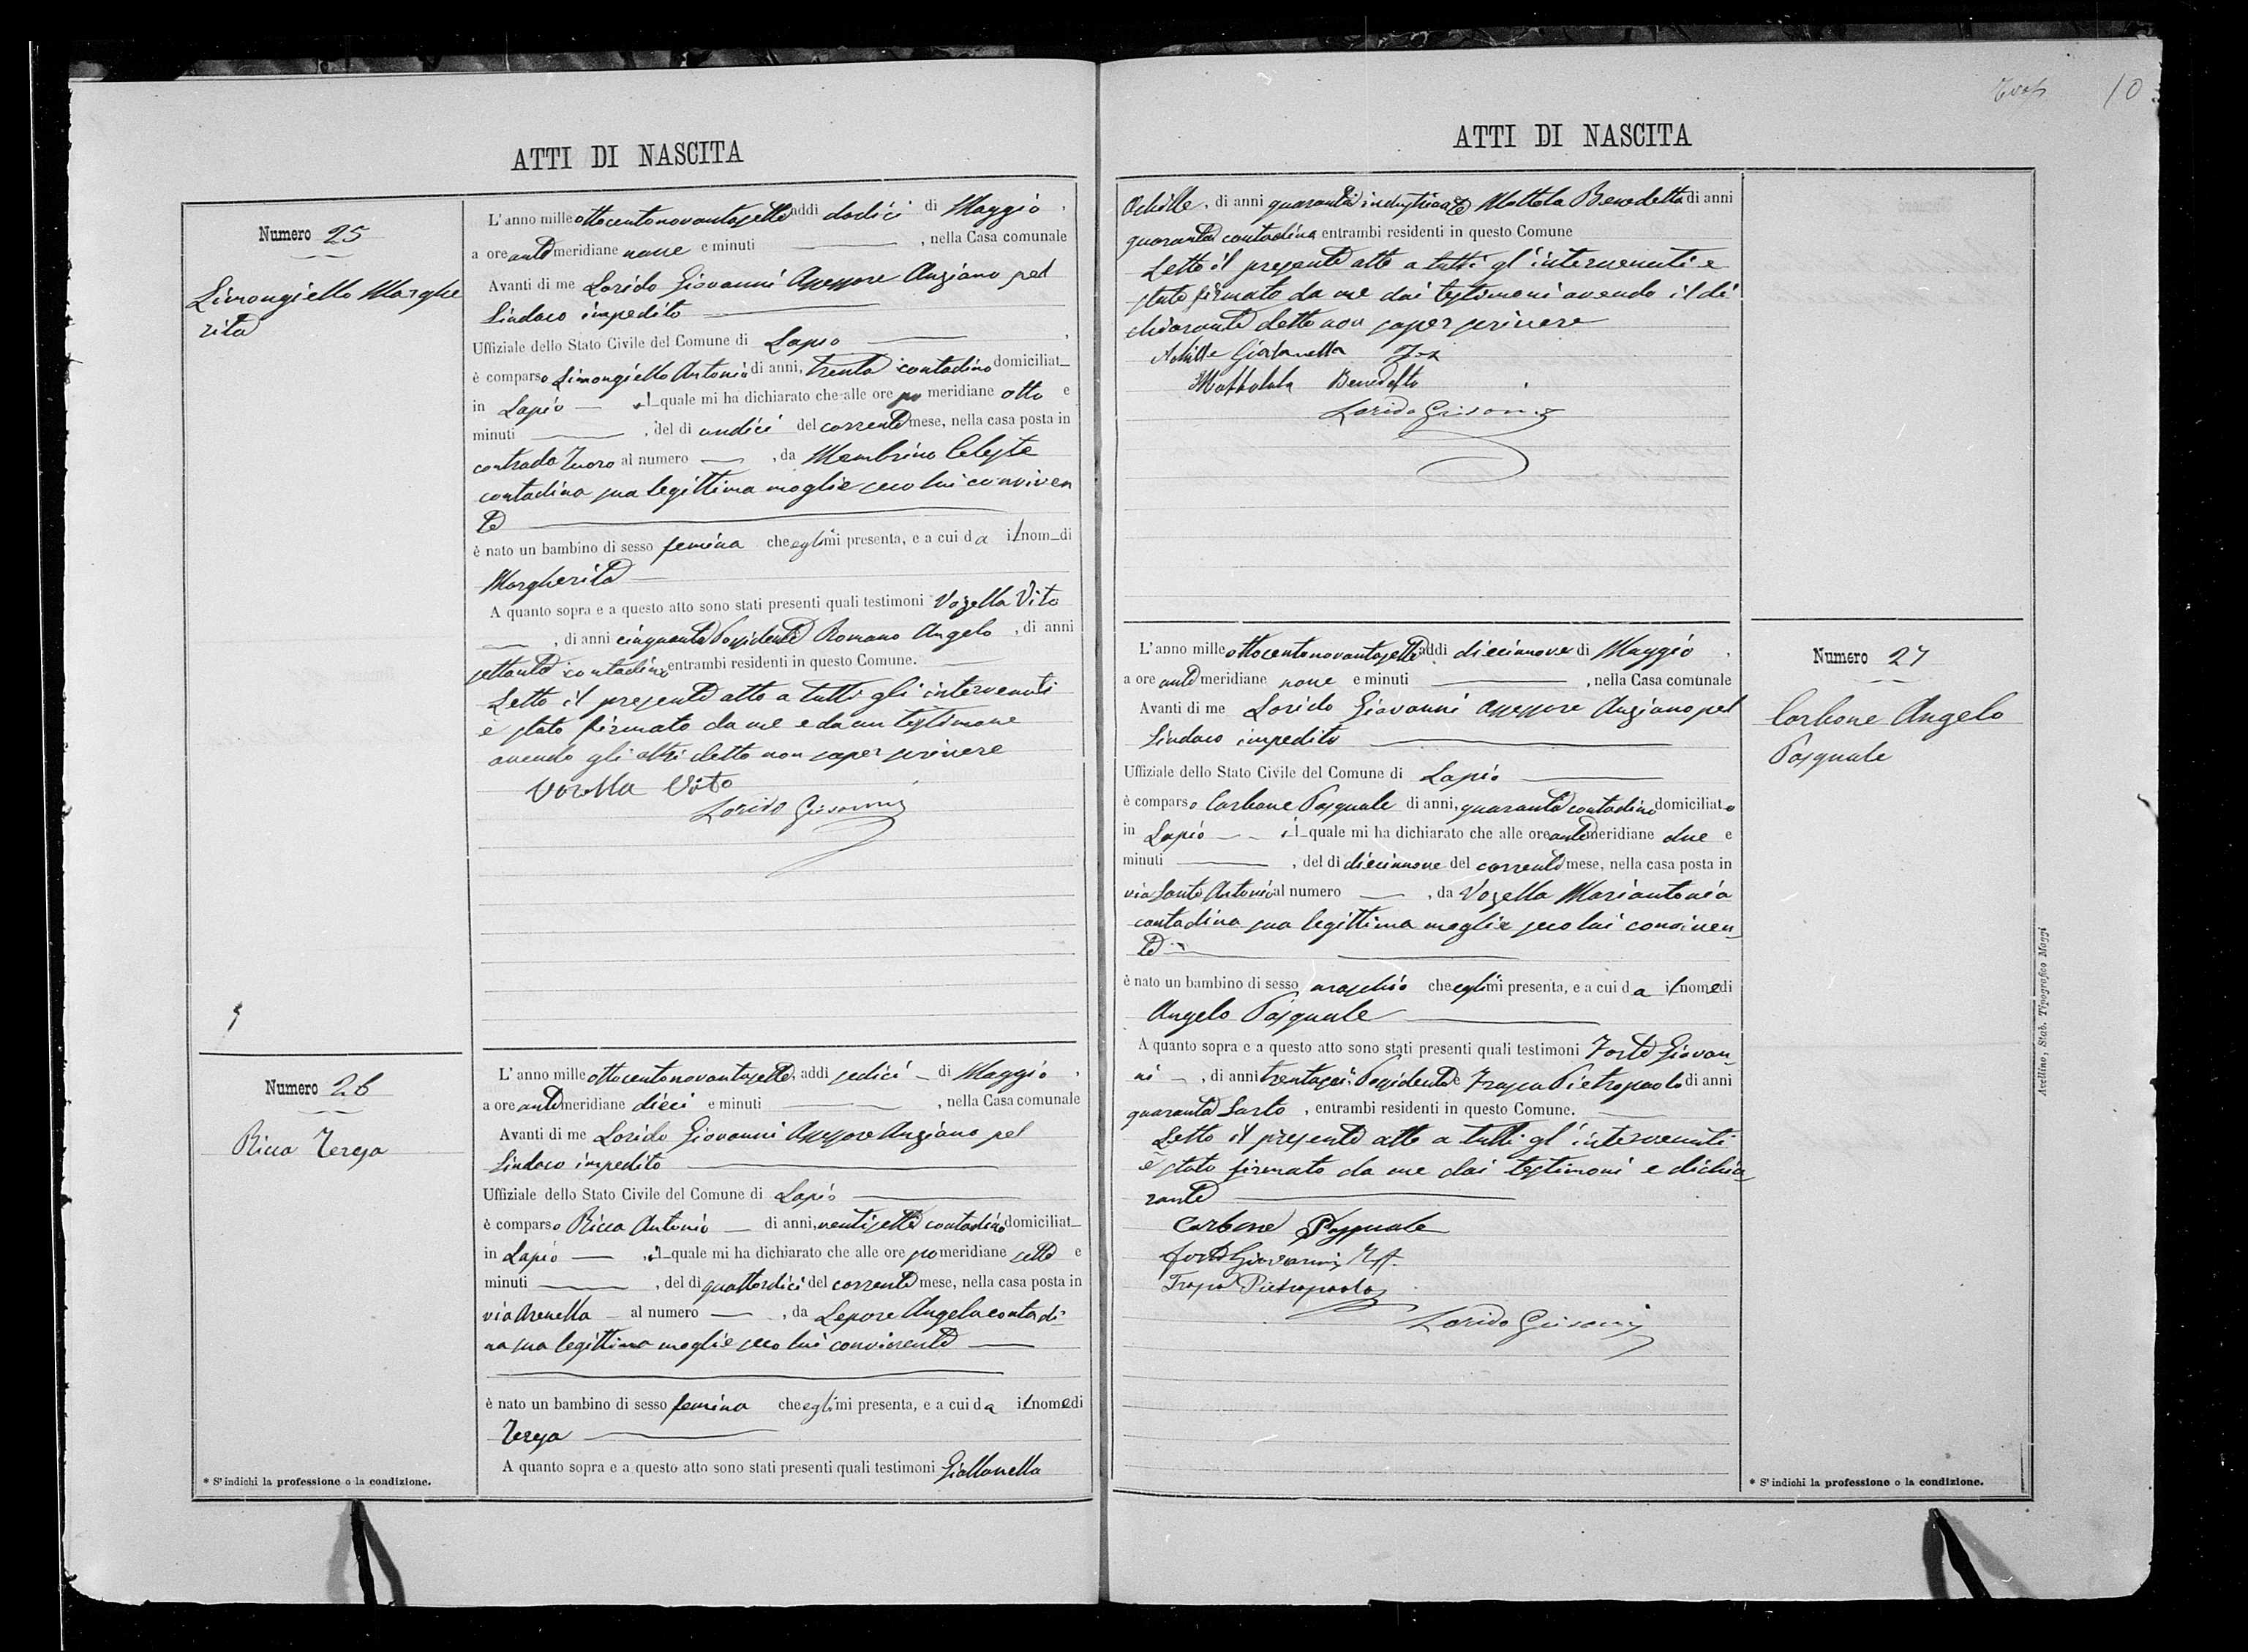 10
ATTI DI NASCITA
Numero 25
Limongiello Marghe
rita
L'anno mille ottocentonovantasette addì dodici di Maggio,
a ore antemeridiane nove e minuti , nella Casa comunale
Avanti di me Lorido Giovanni Assessore Anziano pel
Sindaco impedito
Uffiziale dello Stato Civile del Comune di Lapio ,
è comparso Limongiello Antonio di anni, trenta contadino domiciliat
in Lapio il quale mi ha dichiarato che alle ore po meridiane otto e
minuti , del dì undici del corrente mese, nella casa posta in
contrada Tuoro al numero , da Membrino Celeste
contadina sua legittima moglie seco lui conviven
te
è nato un bambino di sesso femina che egli mi presenta, e a cui da il nom di
Margherita
A quanto sopra e a questo atto sono stati presenti quali testimoni Vozella Vito
, di anni cinquanta Possidente Romano Angelo , di anni
settanta contadino entrambi residenti in questo Comune.
Letto il presente atto a tutti gli intervenuti
è stato firmato da me e da un testimone
avendo gli altri detto non saper scrivere
Vozella Vito
Lorido Giovanni
Numero 26
Ricca Teresa
L'anno mille ottocentonovantasette, addì sedici di Maggio ,
a ore antemeridiane dieci e minuti , nella Casa comunale
Avanti di me Lorido Giovanni Assessore Anziano pel
Sindaco impedito
Uffiziale dello Stato Civile del Comune di Lapio
è comparso Ricca Antonio di anni, ventisette contadino domiciliat
in Lapio , il quale mi ha dichiarato che alle ore pomeridiane sette e
minuti , del dì quattordici del corrente mese, nella casa posta in
via Arenella al numero , da Lepore Angela contadi-
na sua legittima moglie seco lui convivente
è nato un bambino di sesso femina che egli mi presenta, e a cui da il nome di
Teresa
A quanto sopra e a questo atto sono stati presenti quali testimoni Giallanella
* S'indichi la professione o la condizione.
ATTI DI NASCITA
Achille, di anni quaranta industriante Mottola Benedetto di anni
quaranta contadino entrambi residenti in questo Comune
Letto il presente atto a tutti gl'intervenuti e
stato firmato da me dai testimoni avendo il di
chiarante detto non saper scrivere
Achille Giallanella
Mottolola Benedetto
Lorido Giovanni
Numero 27
Carbone Angelo
Pasquale
L'anno mille ottocentonovantasette addì diecinnove di Maggio ,
a ore antemeridiane nove e minuti , nella Casa comunale
Avanti di me Lorido Giovanni Assessore Anziano pel
Sindaco impedito
Uffiziale dello Stato Civile del Comune di Lapio
è comparso Carbone Pasquale di anni, quaranta contadino domiciliato
in Lapio il quale mi ha dichiarato che alle ore antemeridiane due e
minuti , del dì diecinnove del corrente mese, nella casa posta in
via Santo Antonio al numero , da Vozella Mariantonia
contadina sua legittima moglie seco lui conviven
te
è nato un bambino di sesso maschio che egli mi presenta, e a cui da il nome di
Angelo Pasquale
A quanto sopra e a questo atto sono stati presenti quali testimoni Forte Giovan
ni , di anni trentasei Possidente e Trapa Pietropaolo di anni
quaranta Sarto , entrambi residenti in questo Comune.
Letto il presente atto a tutti gl'intervenuti
è stato firmato da me dai testimoni e dichia
rante
Carbone Pasquale
Forte Giovanni
Trapa Pietropaolo
Lorido Giovanni
* S'indichi la professione o la condizione.
Avellino, Stab. Tipografico Maggi